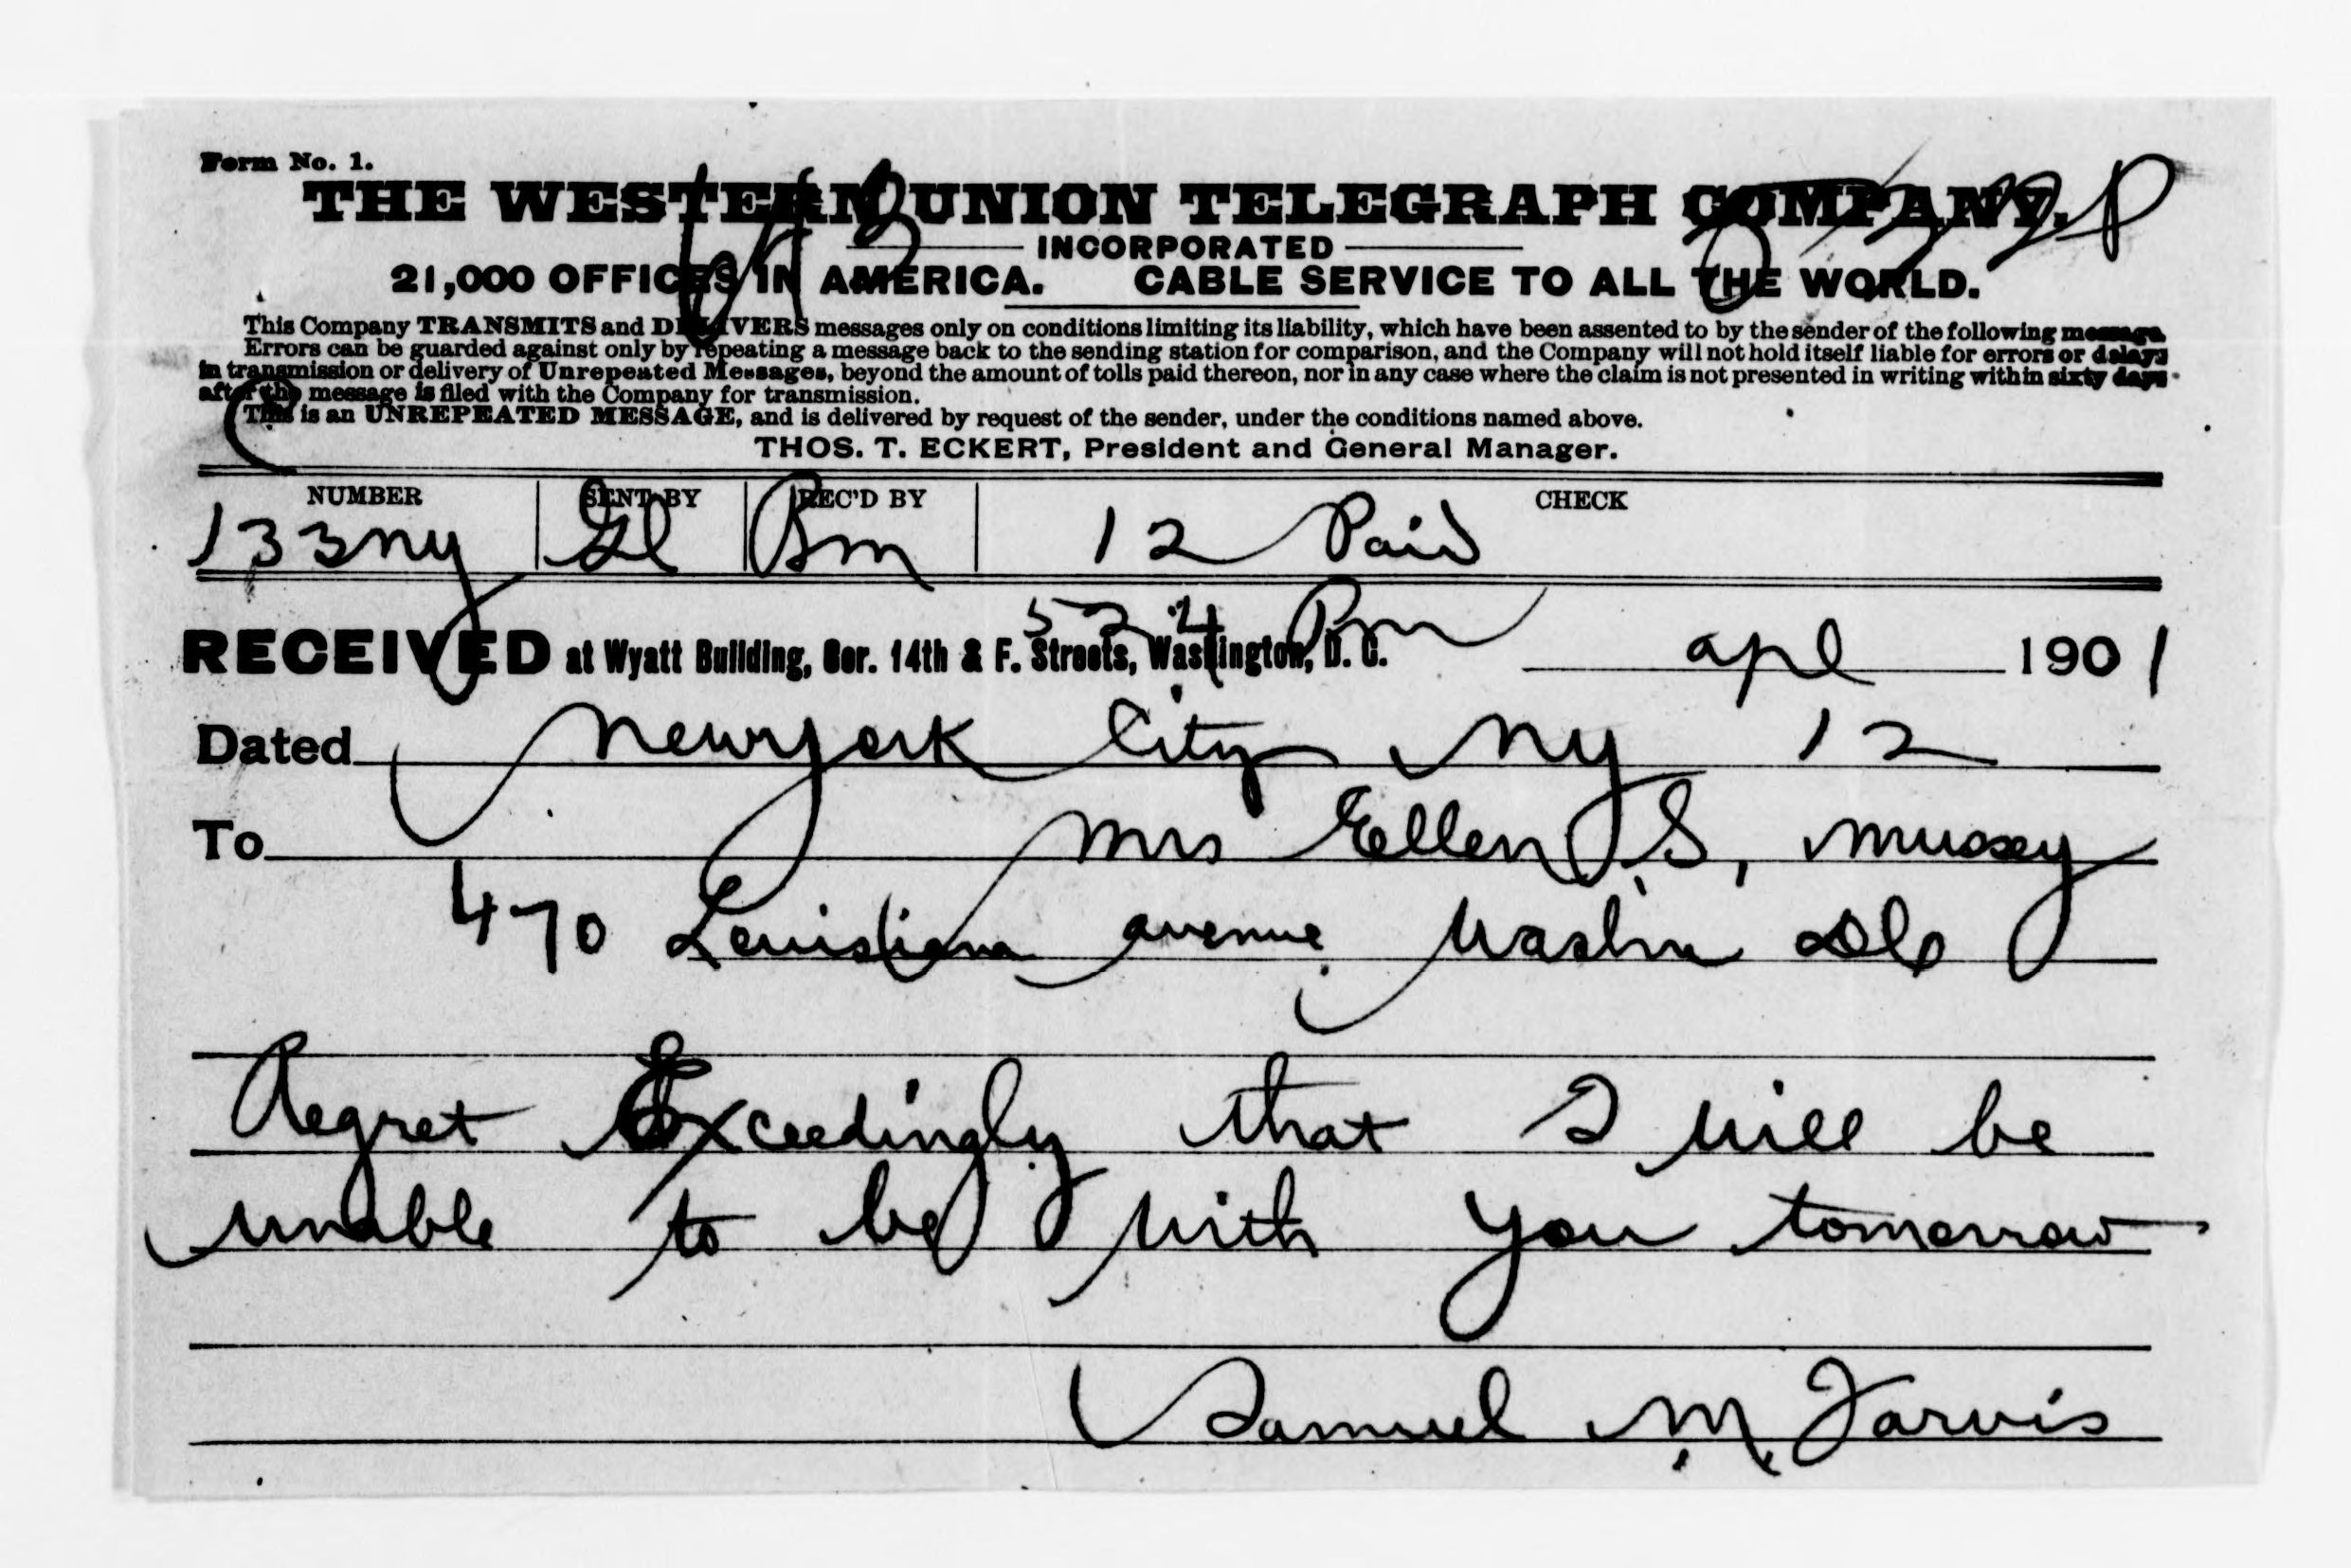 Form No. 1.
THE WESTERN UNION TELEGRAPH COMPANY.
INCORPORATED
21,000 OFFICES IN AMERICA. CABLE SERVICE TO ALL THE WORLD.
This Company TRANSMITS and DELIVERS messages only on conditions limiting its liability, which have been assented to by the sender of the following message.
Errors can be guarded against only by repeating a message back to the sending station for comparison, and the Company will not hold itself liable for errors or delays
in transmission or delivery of Unrepeated Messages, beyond the amount of tolls paid thereon, nor in any case where the claim is not presented in writing within sixty days
after the message is filed with the Company for transmission.
This is an UNREPEATED MESSAGE, and is delivered by request of the sender, under the conditions named above.
THOS. T. ECKERT, President and General Manager.
NUMBER SENT BY REC'D BY CHECK
133ny Gl Bm 12 Paid
524 Pm
RECEIVED at Wyatt Building, Cor. 14th & F. Streets, Washington, D. C. apl 1901
Dated New york City ny 12
To Mrs Ellen S, Mussey
470 Louisiana avenue Washn DC
Regret Exceedingly that I will be
unable to be with you tomorrow
Samuel M. Jarvis